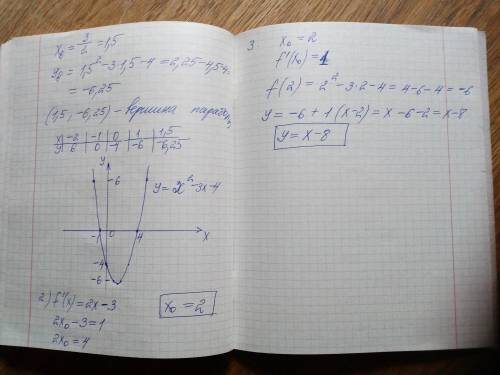 x_в = 3/2 = 1,5
y_в = 1,5² - 3·1,5 - 4 = 2,25 - 4,5 - 4
= -6,25
(1,5; -6,25) - вершина параболы
x | -2 | -1 | 0 | 1 | 1,5
y | 6 | 0 | -4 | -6 | -6,25
y
6
y = x² - 3x - 4
-1 0 4 x
-4
-6
2) f'(x) = 2x - 3
2x₀ - 3 = 1
2x₀ = 4
x₀ = 2
3 x₀ = 2
f'(x₀) = 1
f(2) = 2² - 3·2 - 4 = 4 - 6 - 4 = -6
y = -6 + 1(x - 2) = x - 6 - 2 = x - 8
y = x - 8